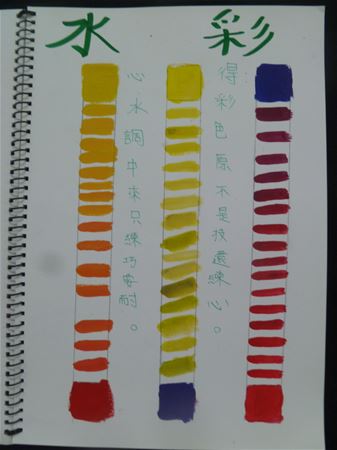 水彩
得彩色原不是技還練心。
心水調中來只練巧需耐。